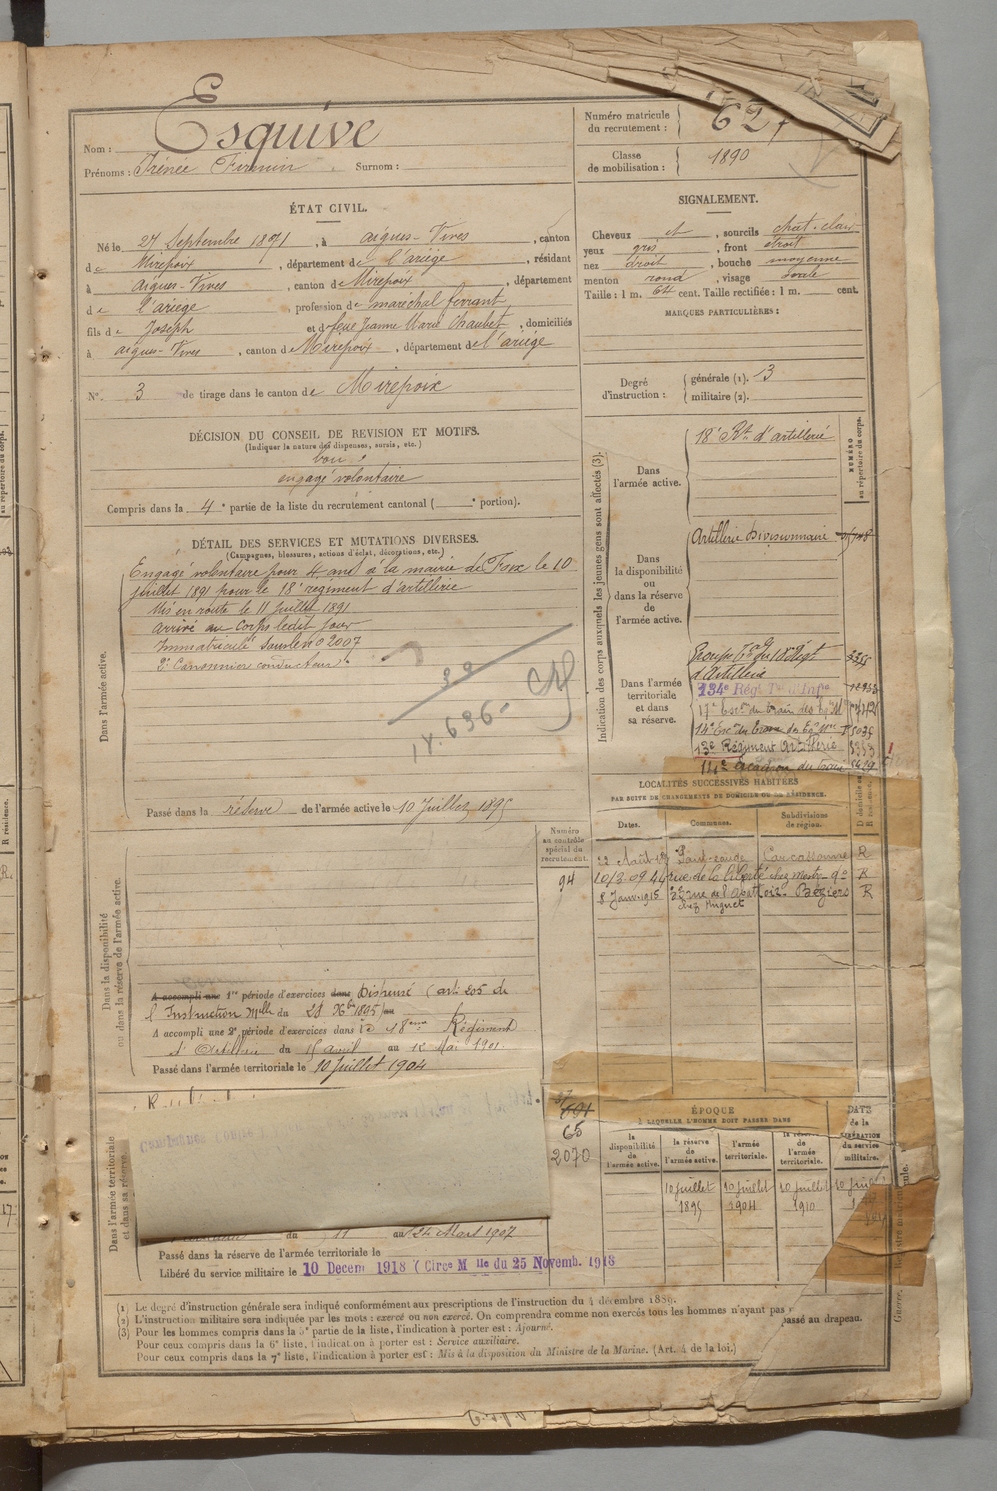 Nom : Esquive
Prénoms : Irénée Firmin Surnom :
ÉTAT CIVIL.
Né le 27 Septembre 1871, à Aigues-Vives, canton
de Mirepoix, département de l'ariège, résidant
à Aigues-Vives, canton de Mirepoix, département
de l'ariege, profession de marechal ferrant
fils de Joseph et de feue Jeanne Marie Chaubet, domiciliés
à aigues-Vives, canton de Mirepoix, département de l'ariège
N° 3 de tirage dans le canton de Mirepoix
DÉCISION DU CONSEIL DE REVISION ET MOTIFS.
(Indiquer la nature des dispenses, sursis, etc.)
bon
engagé volontaire
Compris dans la 4e partie de la liste du recrutement cantonal ( e portion).
DÉTAIL DES SERVICES ET MUTATIONS DIVERSES.
(Campagnes, blessures, actions d'éclat, décorations, etc.)
Dans l'armée active.
Engagé volontaire pour 4 ans à la mairie de Foix le 10
juillet 1891 pour le 18e régiment d'artillerie
Mis en route le 11 juillet 1891
arrivé au corps ledit jour
Immatriculé sous le no 2007
2e Canonnier conducteur
39
14.636
Passé dans la réserve de l'armée active le 10 Juillet 1895
Numéro
au contrôle
spécial du
recrutement.
94
Dans la disponibilité
ou dans la réserve de l'armée active.
A accompli une 1re période d'exercices dans Dispensé (art. 205 de
l'Instruction Mlle du 28 Xbre 1895) au
A accompli une 2e période d'exercices dans le 18eme Régiment
d'Artillerie du 15 avril au 12 Mai 1901.
Passé dans l'armée territoriale le 10 Juillet 1904
Dans l'armée territoriale
et dans sa réserve.
37
601
65
2070
du 11 au 24 Mars 1907
Passé dans la réserve de l'armée territoriale le
Libéré du service militaire le 10 Decem 1918 (Circe M lle du 25 Novemb. 1918
(1) Le degré d'instruction générale sera indiqué conformément aux prescriptions de l'instruction du 4 décembre 1889.
(2) L'instruction militaire sera indiquée par les mots : exercé ou non exercé. On comprendra comme non exercés tous les hommes n'ayant pas passé au drapeau.
(3) Pour les hommes compris dans la 5e partie de la liste, l'indication à porter est : Ajourné.
Pour ceux compris dans la 6e liste, l'indication à porter est : Service auxiliaire.
Pour ceux compris dans la 7e liste, l'indication à porter est : Mis à la disposition du Ministre de la Marine. (Art. 4 de la loi.)
Numéro matricule
du recrutement : 627
Classe
de mobilisation : 1890
SIGNALEMENT.
Cheveux et, sourcils chat-clair
yeux gris, front étroit
nez droit, bouche moyenne
menton rond, visage ovale
Taille : 1 m. 64 cent. Taille rectifiée : 1 m. cent.
MARQUES PARTICULIÈRES :
Degré
d'instruction :
générale (1). 3
militaire (2).
Indication des corps auxquels les jeunes gens sont affectés (3).
NUMÉRO
au répertoire du corps.
Dans
l'armée active.
18e Rt d'artillerie
Dans
la disponibilité
ou
dans la réserve
de
l'armée active.
Artillerie Divisionnaire
Dans l'armée
territoriale
et dans
sa réserve.
Groupe Tal du 18e Régt 3355
d'Artillerie
134e Régt Tal d'Infie
17e Escon du train des Eqges Mres
14e Escon du train des Eqges Mres 5035
13e Régiment Artillerie 3353
14e Escadron du train
LOCALITÉS SUCCESSIVES HABITÉES
PAR SUITE DE CHANGEMENTS DE DOMICILE OU DE RÉSIDENCE.
Dates. Communes. Subdivisions
de région.
22 Août Carcassonne R
10/3.09 44 rue de la liberté chez R
8 Janv. 1915 32 rue de l'Abattoir Béziers R
chez Huguet
ÉPOQUE
À LAQUELLE L'HOMME DOIT PASSER DANS
DATE
de la
LIBÉRATION
du service
militaire.
la
disponibilité
de
l'armée active.
la réserve
de
l'armée active.
l'armée
territoriale.
la réserve
de
l'armée
territoriale.
10 juillet 10 juillet 10 juillet 10 juil
1895 1904 1910